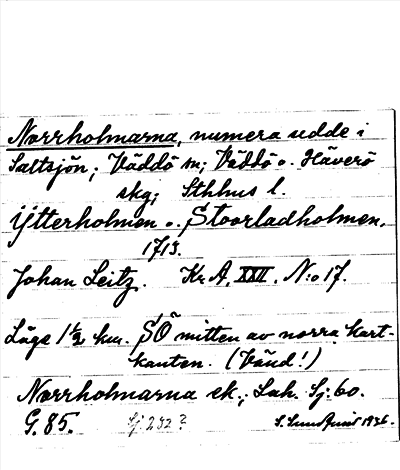 Norrholmarna, numera udde i
Saltsjön; Väddö sn; Väddö o. Häverö
skg; Sthlms l.
Ytterholmen o. Stoorladholmen.
1713.
Johan Leitz. Kr. A. XXII. N:o 17.
Läge 1 1/2 km. SÖ mitten av norra kart-
kanten. (Vänd!)
Norrholmarna ek.; Lah. Sj: 60.
G. 85. Sj: 232?
S. Sundquist 1936.